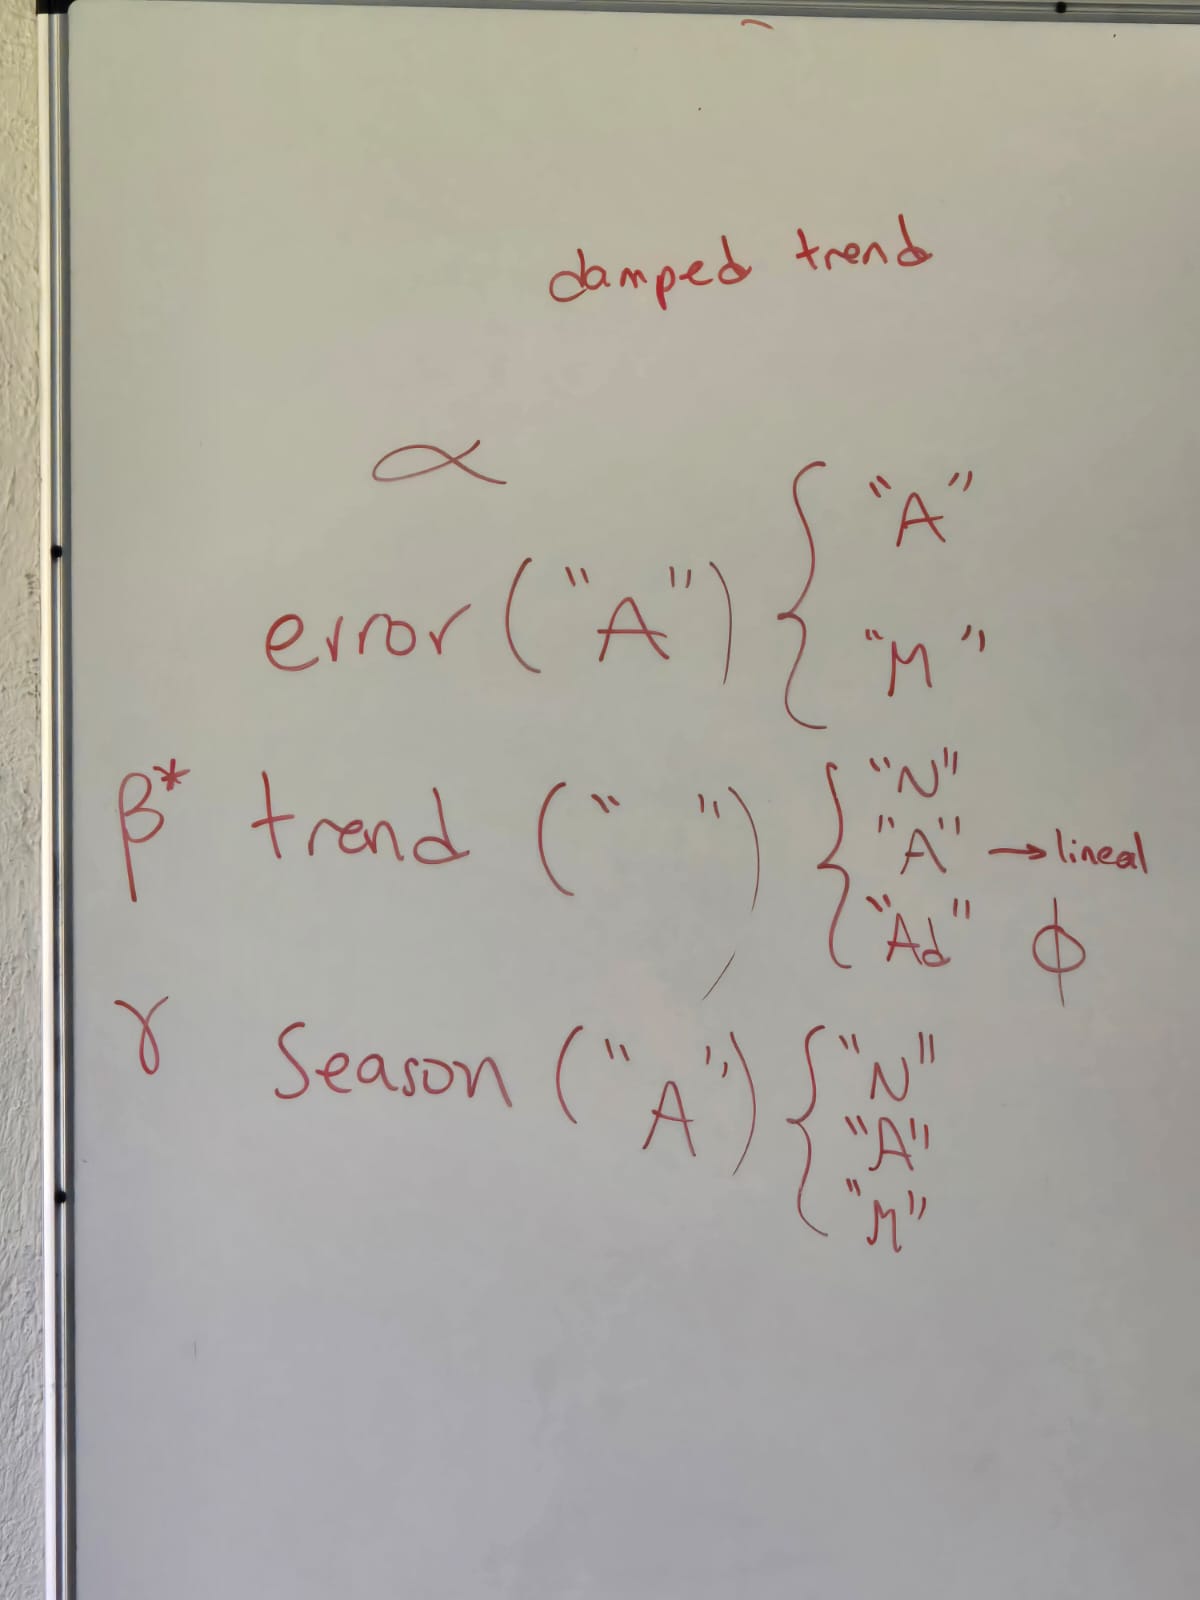 damped trend
α
error ("A") { "A"
"M"
β* trend (" ") { "N"
"A" → lineal
"Ad" ϕ
γ Season ("A") { "N"
"A"
"M"